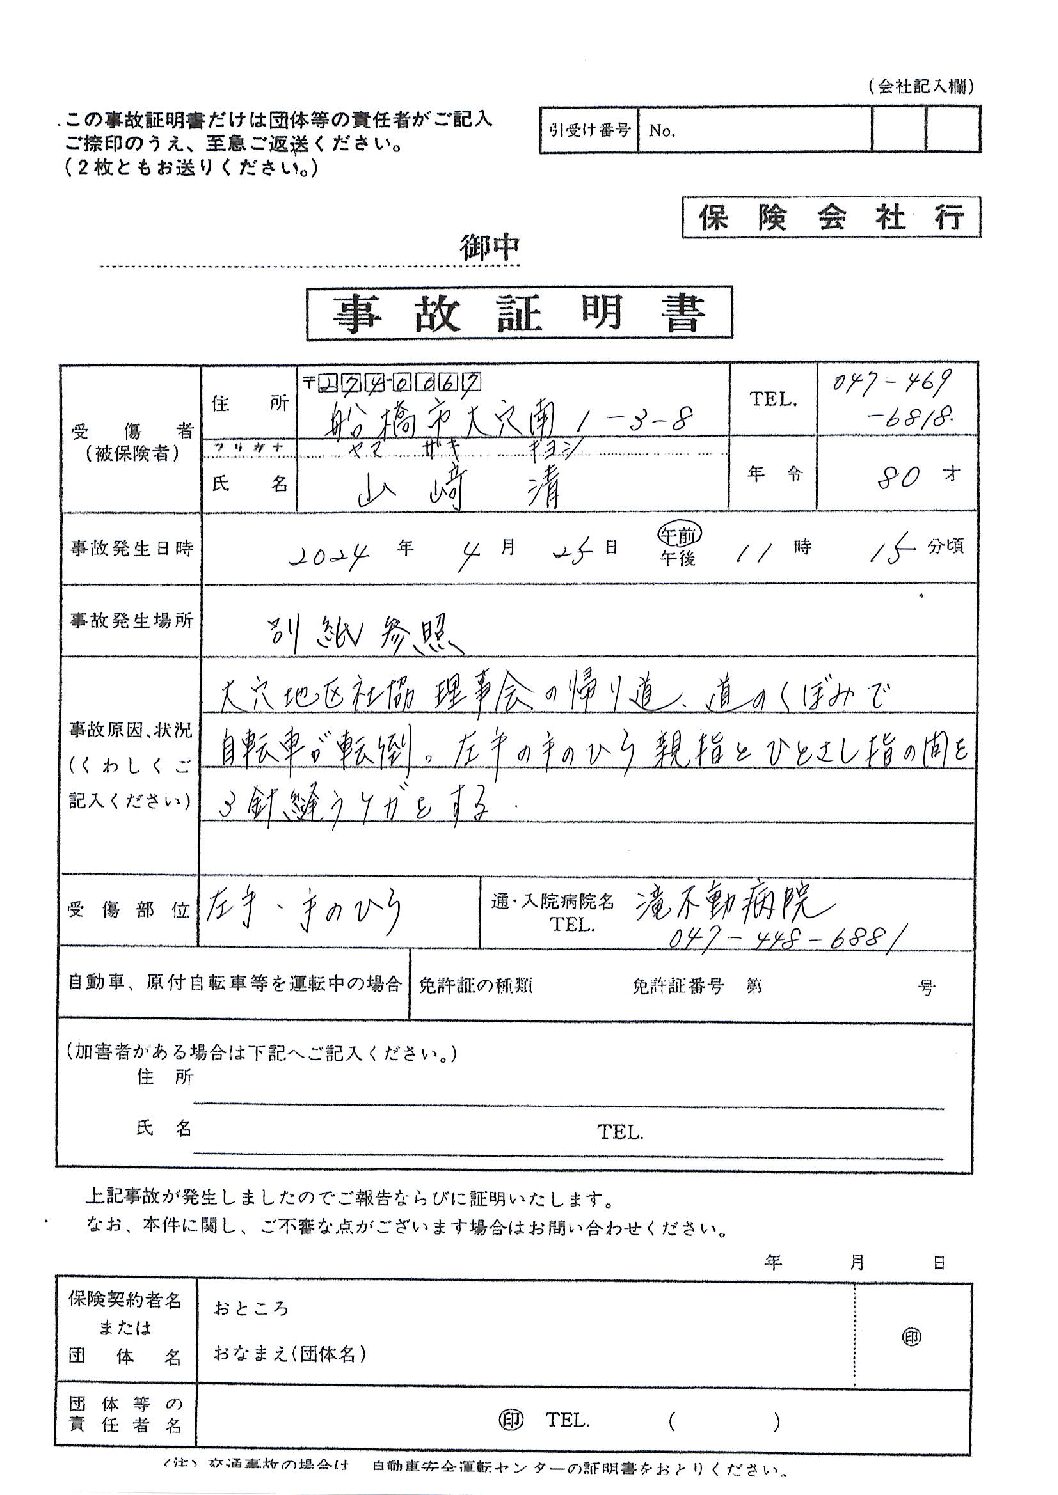 (会社記入欄)
この事故証明書だけは団体等の責任者がご記入
ご捺印のうえ、至急ご返送ください。
(2枚ともお送りください。)
引受け番号 No.
保険会社行
御中
事故証明書
受傷者
(被保険者)
住所
〒274-0067
船橋市大穴南1-3-8
TEL.
047-469
-6818
フリガナ ヤマ ザキ キヨシ
氏名 山﨑 清
年令 80才
事故発生日時 2024年 4月 25日 午前 午後 11時 15分頃
事故発生場所 別紙参照
事故原因、状況
(くわしくご
記入ください)
大穴地区社協理事会の帰り道、道のくぼみで
自転車が転倒。左手の手のひら親指とひとさし指の間を
3針縫うケガをする.
受傷部位 左手・手のひら
通・入院病院名 滝不動病院
TEL. 047-448-6881
自動車、原付自転車等を運転中の場合 免許証の種類 免許証番号 第 号
(加害者がある場合は下記へご記入ください。)
住所
氏名 TEL.
上記事故が発生しましたのでご報告ならびに証明いたします。
なお、本件に関し、ご不審な点がございます場合はお問い合わせください。
年 月 日
保険契約者名
または
団体名
おところ
おなまえ(団体名)
㊞
団体等の
責任者名
㊞ TEL. ( )
(注) 交通事故の場合は、自動車安全運転センターの証明書をおとりください。